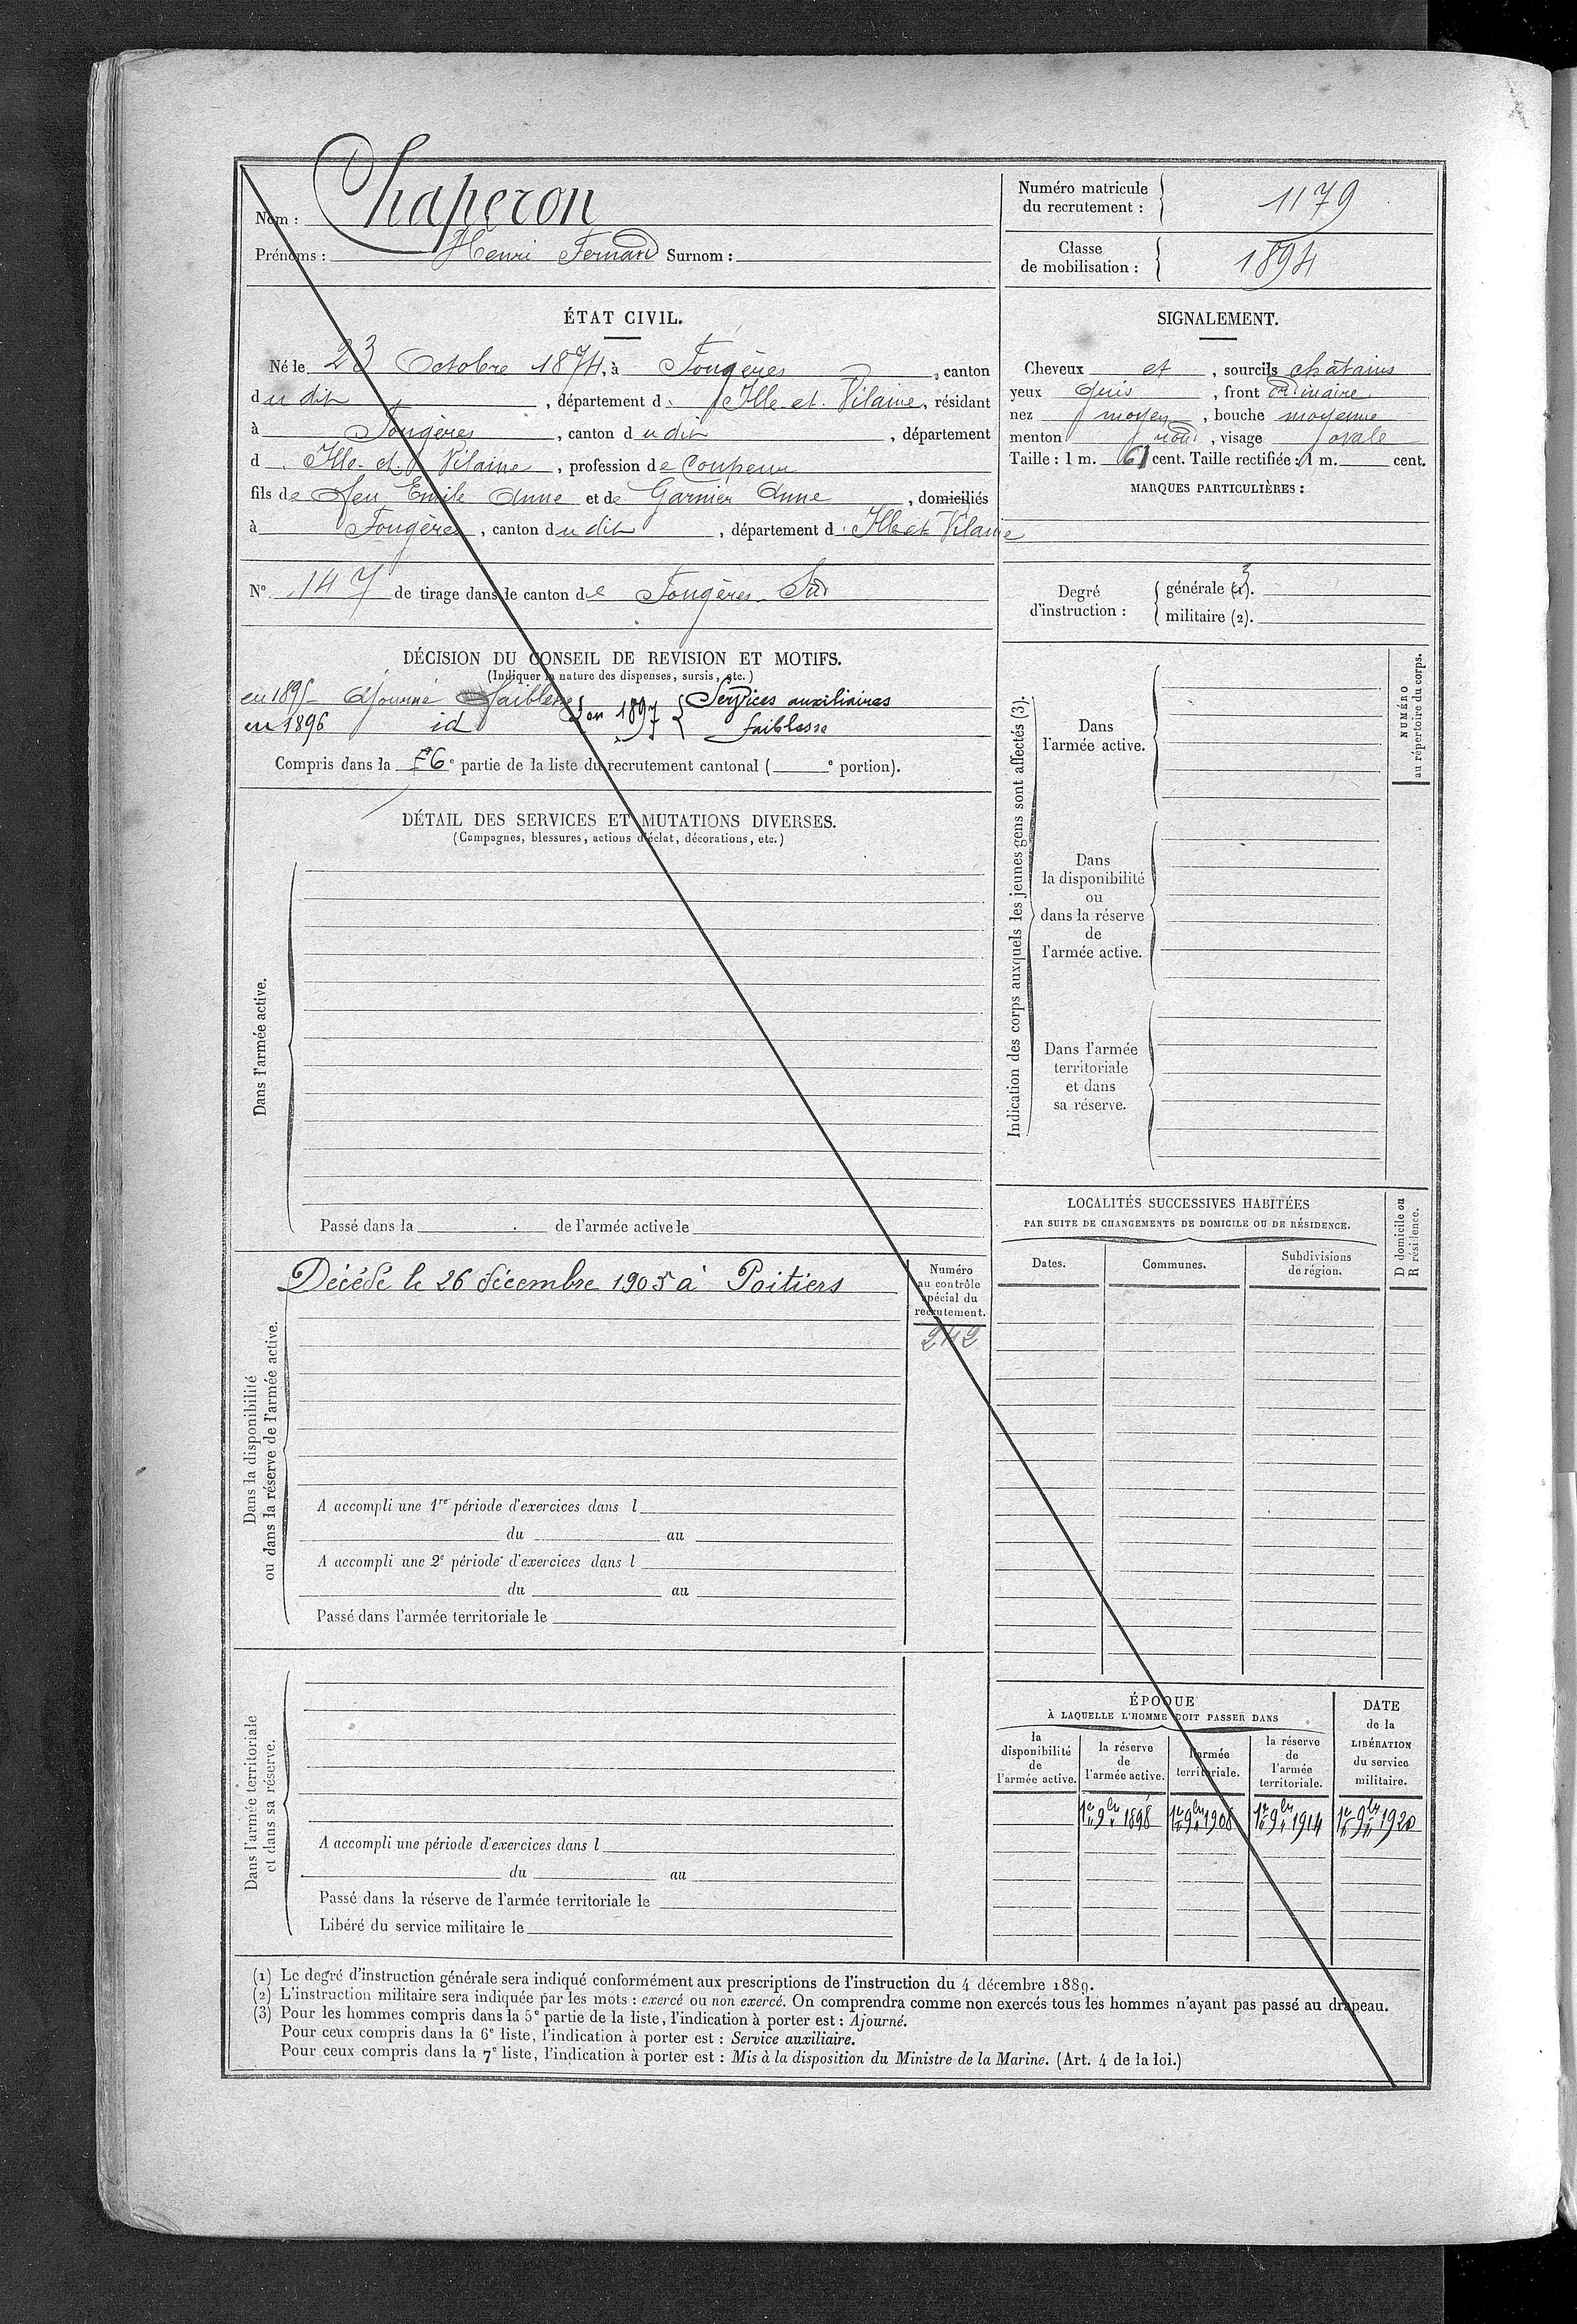 Nom : Chaperon
Prénoms : Henri Fernand Surnom :
Numéro matricule du recrutement : 1179
Classe de mobilisation : 1894
ÉTAT CIVIL.
Né le 23 Octobre 1874, à Fougères, canton
du dit, département d. Ille-et-Vilaine, résidant
à Fougères, canton du dit, département
d. Ille-et-Vilaine, profession de Coupeur
fils de feu Emile Anne et de Garnier Anne, domiciliés
à Fougères, canton du dit, département d. Ille et Vilaine
N° 147 de tirage dans le canton de Fougères Sud
SIGNALEMENT.
Cheveux et, sourcils châtains
yeux gris, front ordinaire
nez moyen, bouche moyenne
menton rond, visage ovale
Taille : 1 m. 61 cent. Taille rectifiée : 1 m. cent.
MARQUES PARTICULIÈRES :
Degré d'instruction :
générale (1). 3
militaire (2).
DÉCISION DU CONSEIL DE REVISION ET MOTIFS.
(Indiquer la nature des dispenses, sursis, etc.)
en 1895 Ajourné faiblesse
en 1896 id
en 1897 Services auxiliaires
faiblesse
Compris dans la 6e partie de la liste du recrutement cantonal ( e portion).
DÉTAIL DES SERVICES ET MUTATIONS DIVERSES.
(Campagnes, blessures, actions d'éclat, décorations, etc.)
Dans l'armée active.
Passé dans la de l'armée active le
Indication des corps auxquels les jeunes gens sont affectés (3).
Dans
l'armée active.
Dans
la disponibilité
ou
dans la réserve
de
l'armée active.
Dans l'armée
territoriale
et dans
sa réserve.
NUMÉRO
au répertoire du corps.
Dans la disponibilité
ou dans la réserve de l'armée active.
Décédé le 26 décembre 1905 à Poitiers
Numéro
au contrôle
spécial du
recrutement.
242
A accompli une 1re période d'exercices dans l
du au
A accompli une 2e période d'exercices dans l
du au
Passé dans l'armée territoriale le
LOCALITÉS SUCCESSIVES HABITÉES
PAR SUITE DE CHANGEMENTS DE DOMICILE OU DE RÉSIDENCE.
Dates.
Communes.
Subdivisions
de région.
D domicile ou
R résidence.
Dans l'armée territoriale
et dans sa réserve.
A accompli une période d'exercices dans l
du au
Passé dans la réserve de l'armée territoriale le
Libéré du service militaire le
ÉPOQUE
À LAQUELLE L'HOMME DOIT PASSER DANS
la
disponibilité
de
l'armée active.
la réserve
de
l'armée active.
l'armée
territoriale.
la réserve
de
l'armée
territoriale.
DATE
de la
LIBÉRATION
du service
militaire.
1er 9bre 1898
1er 9bre 1908
1er 9bre 1914
1er 9bre 1920
(1) Le degré d'instruction générale sera indiqué conformément aux prescriptions de l'instruction du 4 décembre 1889.
(2) L'instruction militaire sera indiquée par les mots : exercé ou non exercé. On comprendra comme non exercés tous les hommes n'ayant pas passé au drapeau.
(3) Pour les hommes compris dans la 5e partie de la liste, l'indication à porter est : Ajourné.
Pour ceux compris dans la 6e liste, l'indication à porter est : Service auxiliaire.
Pour ceux compris dans la 7e liste, l'indication à porter est : Mis à la disposition du Ministre de la Marine. (Art. 4 de la loi.)